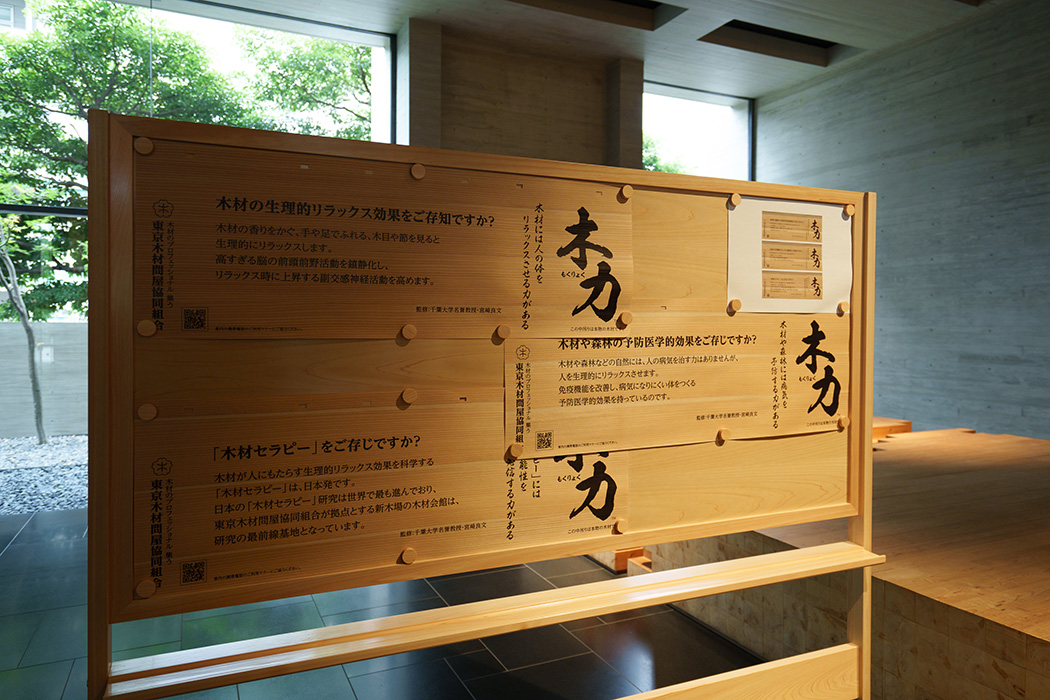 木材の生理的リラックス効果をご存知ですか?
木材の香りをかぐ、手や足でふれる、木目や節を見ると
生理的にリラックスします。
高すぎる脳の前頭前野活動を鎮静化し、
リラックス時に上昇する副交感神経活動を高めます。
監修:千葉大学名誉教授・宮崎良文
木材のプロフェッショナル集う
東京木材問屋協同組合
木材には人の体を
リラックスさせる力がある
木力
もくりょく
木力
木力
木力
木材や森林の予防医学的効果をご存じですか?
木材や森林などの自然には、人の病気を治す力はありませんが、
人を生理的にリラックスさせます。
免疫機能を改善し、病気になりにくい体をつくる
予防医学的効果を持っているのです。
監修:千葉大学名誉教授・宮崎良文
木材のプロフェッショナル集う
東京木材問屋協同組合
木材や森林には病気を
予防する力がある
木力
もくりょく
「木材セラピー」をご存じですか?
木材が人にもたらす生理的リラックス効果を科学する
「木材セラピー」は、日本発です。
日本の「木材セラピー」研究は世界で最も進んでおり、
東京木材問屋協同組合が拠点とする新木場の木材会館は、
研究の最前線基地となっています。
監修:千葉大学名誉教授・宮崎良文
木材のプロフェッショナル集う
東京木材問屋協同組合
ピー」には
能性を
発信する力がある
木力
もくりょく